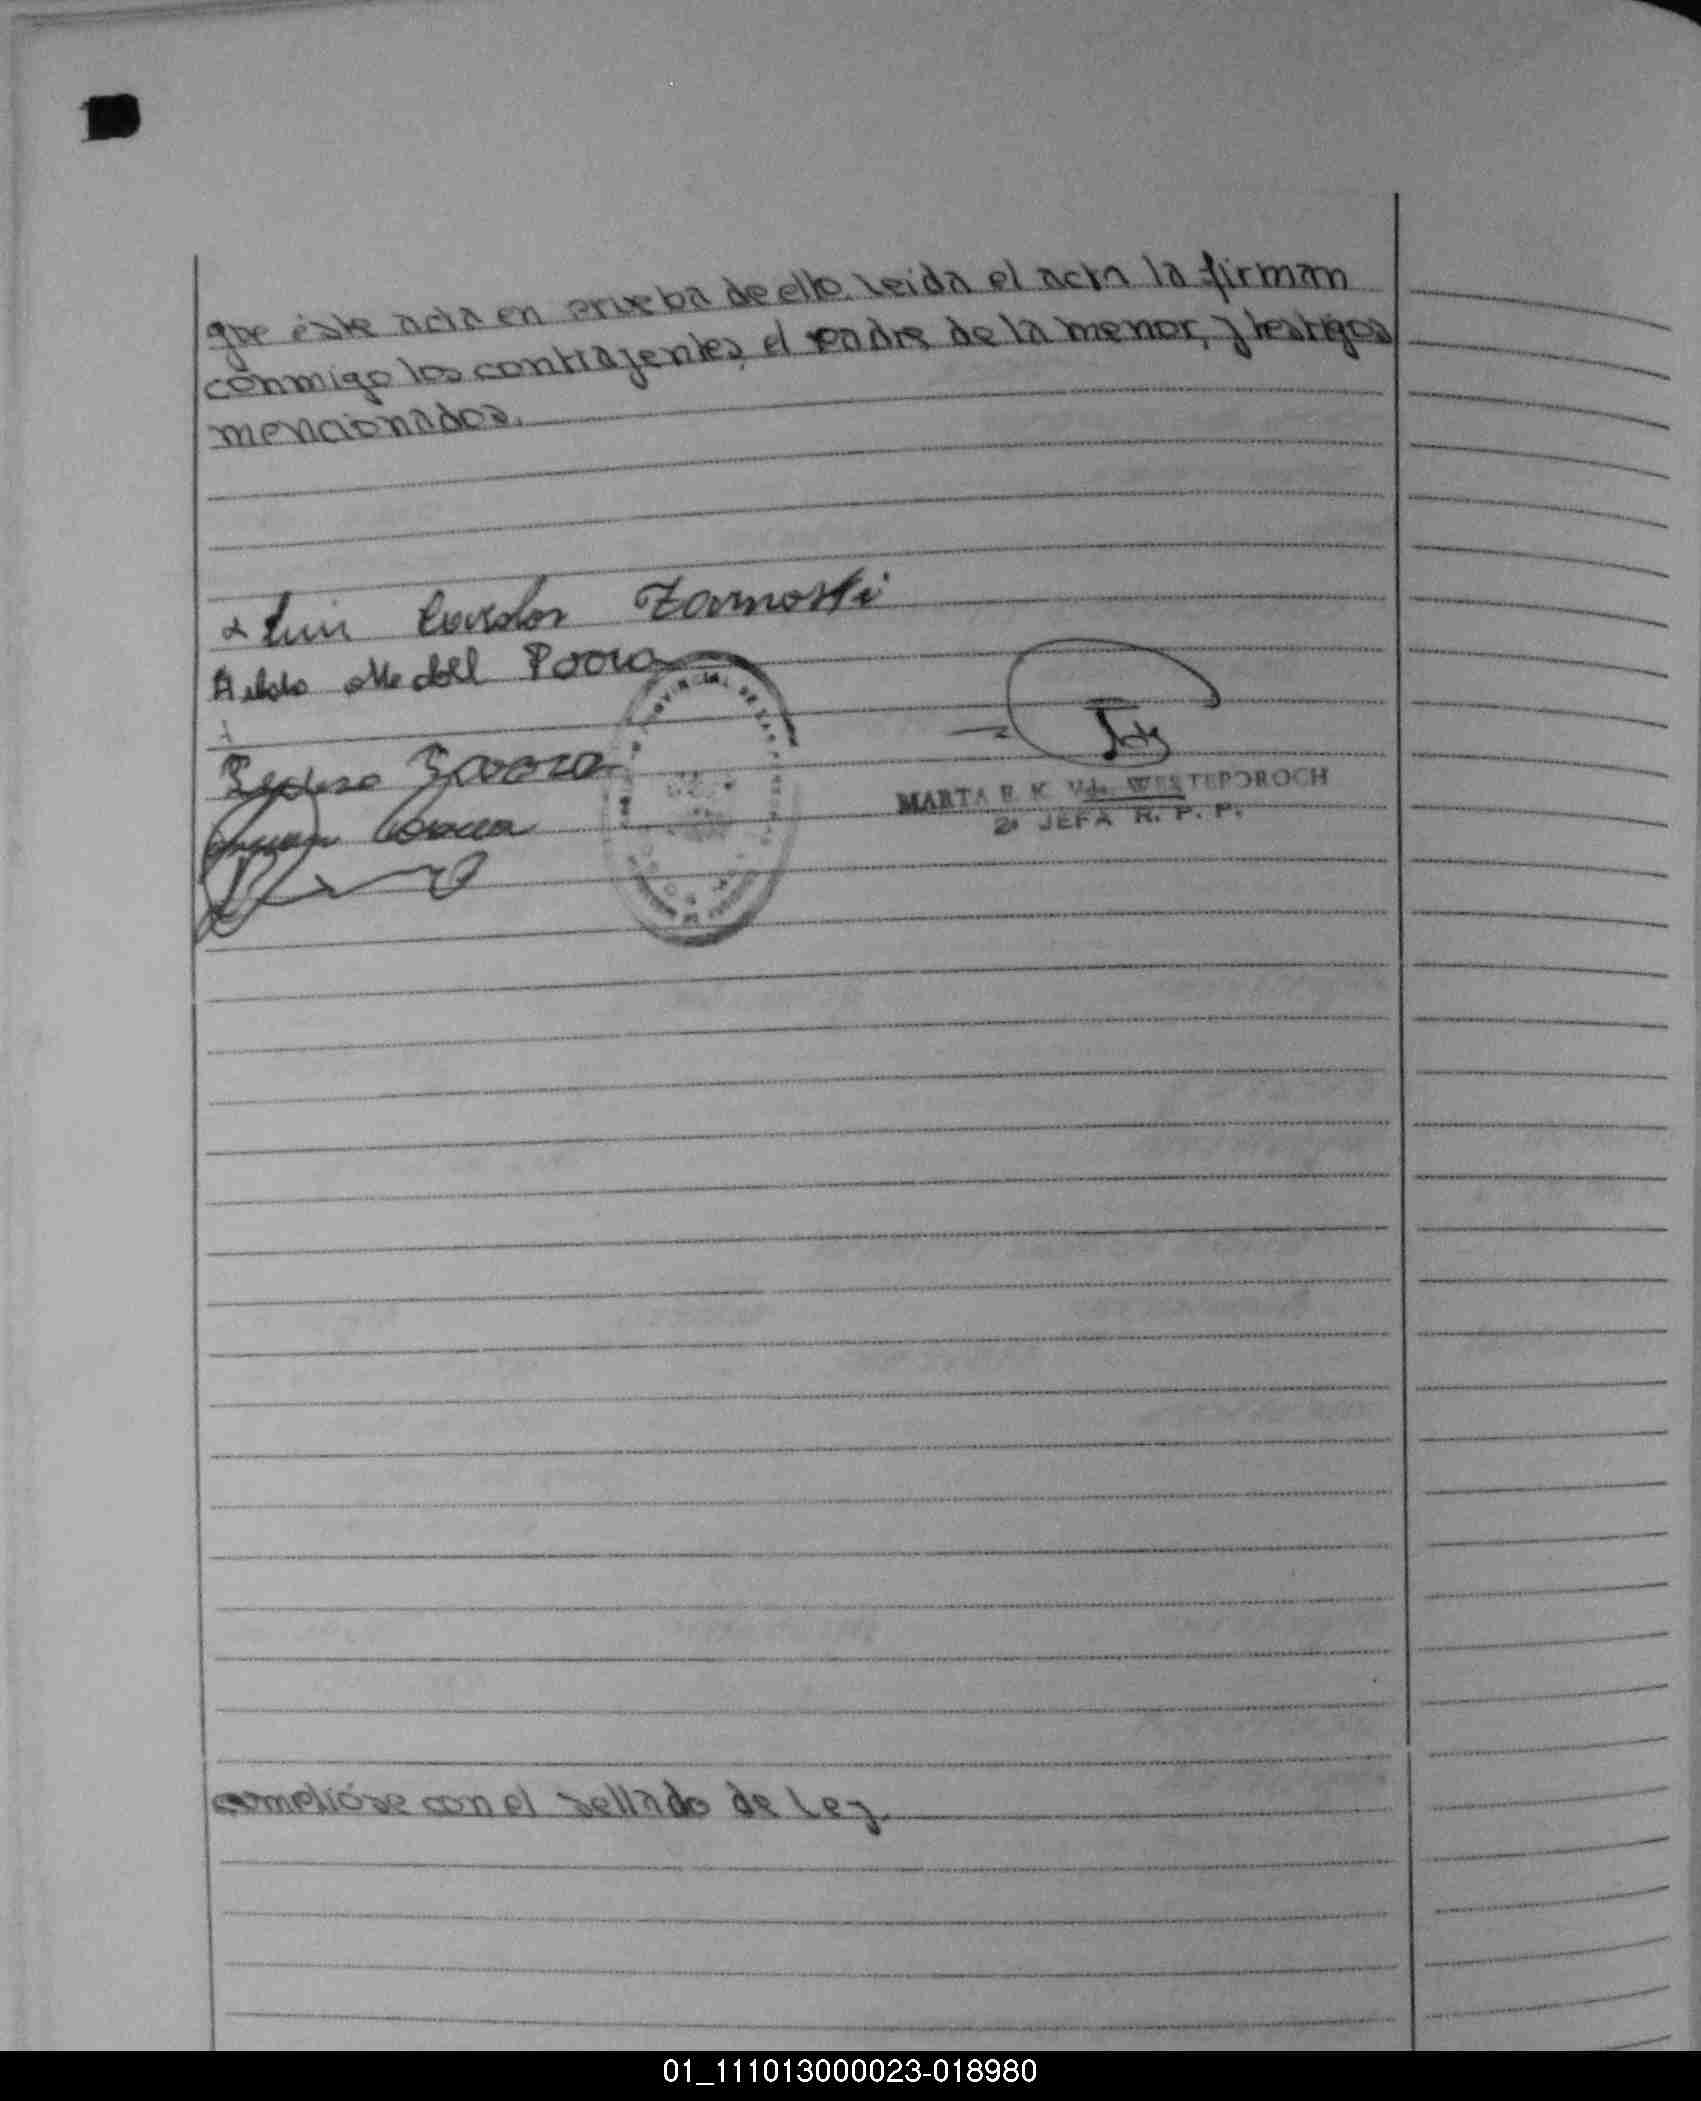 que éste acta en prueba de ello. Leida el acta la firman
conmigo los contrayentes, el padre de la menor, y testigos
mencionados.
Luis Carlos Zarnoski
Pedro
MARTA E. K. Vda. WESTEPOROCH
2a JEFA R. P. P.
cumplióse con el sellado de Ley.
01_111013000023-018980